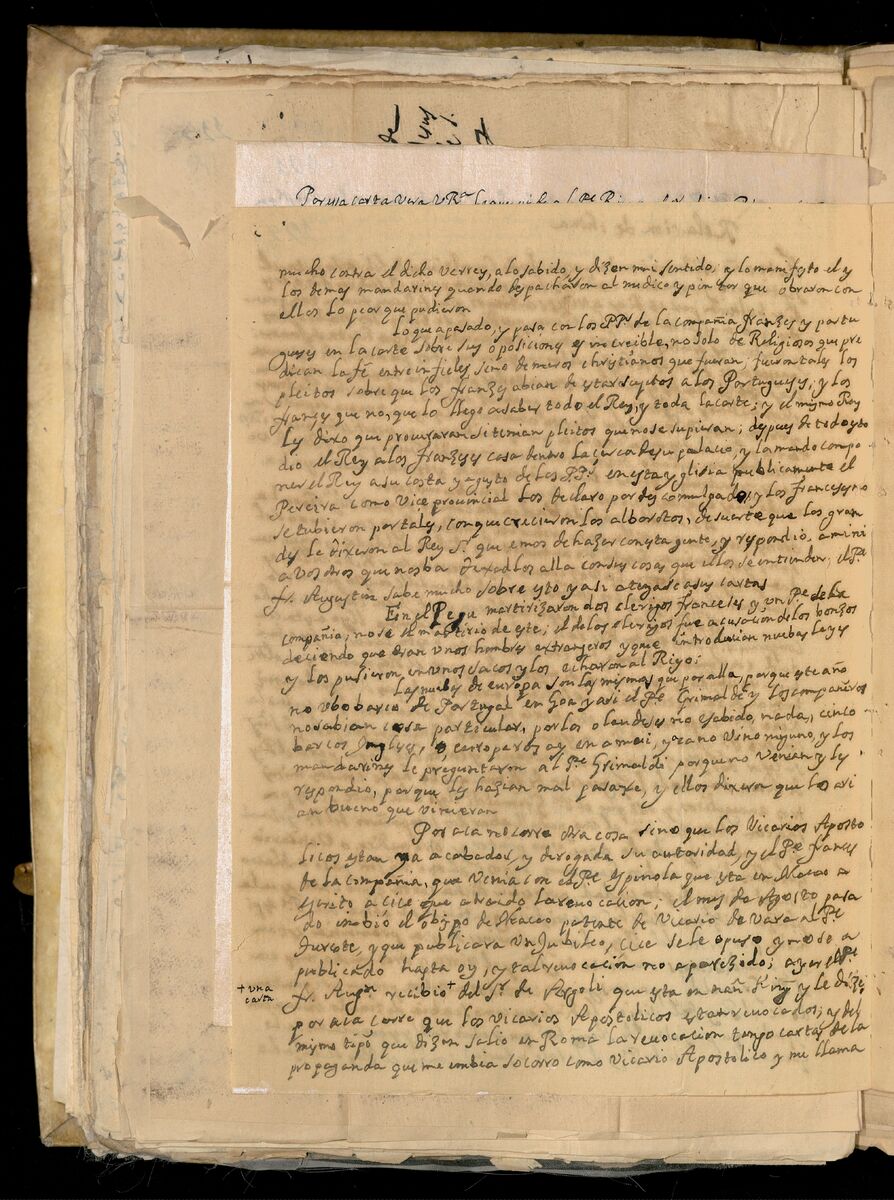 Por essa carta vera V Rª
mucho contra el dicho Verrey, a lo sabido, y dizen mui sentido, y lo manifesto el y
los demas mandarines quando despacharon al medico y pintor que obraron con
ellos lo peor que pudieron
Lo que a pasado, y pasa con los PPˢ de la compañia franzeses y portu
gueses en la corte sobre sus oposiciones es increible, no solo de Religiosos que pre
dican la fe entre infieles sino de meros christianos que fueran; fueron tales los
pleitos sobre que los franzeses abian de estar sujetos a los Portugueses, y los
franzeses que no, que lo llego a saber todo el Rey, y toda la corte; y el mismo Rey
les dixo que procuraran si tenian pleitos que no se supieran; despues de todo esto
dio el Rey a los franzeses casa dentro la çerca de su palacio, y la mando compo
ner el Rey a su costa y a gusto de los PPˢ. en esta yglesia publicamente el
Pereira como Vice provincial los declaro por descomulgados, y los franceses no
se tubieron por tales, con que crecieron los alborotos, de suerte que los gran
des le dixeron al Rey Sʳ. que emos de hazer con esta gente, y respondio, a mi ni
a vosotros que nos ba dexadlos alla con sus cosas que ellos se entienden; el Pᵉ
fr. Augustin sabe mucho sobre esto y asi a sus cartas
En el Pegu martirizaron dos clerigos franceses y un Pᵉ de la
compañia; no se el martirio de este; el de los clerigos fue acusación de los bonzos
deciendo que eran unos hombres extrangeros y que introducian nuebas leyes
y los pusieron en unos sacos y los echaron al Rio:
Las nuebas de europa son las mismas que por alla, porque este año
no vbo barco de Portugal en Goa y asi el Pᵉ Grimaldi y los compañeros
no sabian cosa particular, por los olandeses no e sabido, nada, cinco
barcos Ingleses, ay en amui, ogaño vino ninguno, y los
mandarines le preguntaron al Pᵉ Grimaldi porque no venian y les
respondio, porque les hazian mal pasaxe, y ellos dixeron que los ari
an bueno que vinieran
Por aca no corre otra cosa sino que los Vicarios Aposto
licos estan ya acabados, y derogada su autoridad, y el Pᵉ frances
de la Compañia, que venia con el Pᵉ Espinola que esta en Macao a
escrito a Cice que a traido la revocacion; el mes de Agosto pasa
do inbió el obispo de Macao patente de Vicario de Vara al Pᵉ
Turcote, y que publicara un Jubileo, Cice se le opuso y no se a
publicado hasta oy, y tal revocación no a parezido; ayer el Pᵉ
fr. Augⁿ recibio + del Sʳ. de Argoli que esta en nan King y le dize
+ una
carta
por aca corre que los Vicarios Apostolicos estan revocados; y del
mismo tipõ que dizen salio en Roma la revocacion tengo cartas de la
propaganda que me embia socorro como Vicario Apostolico y me llama